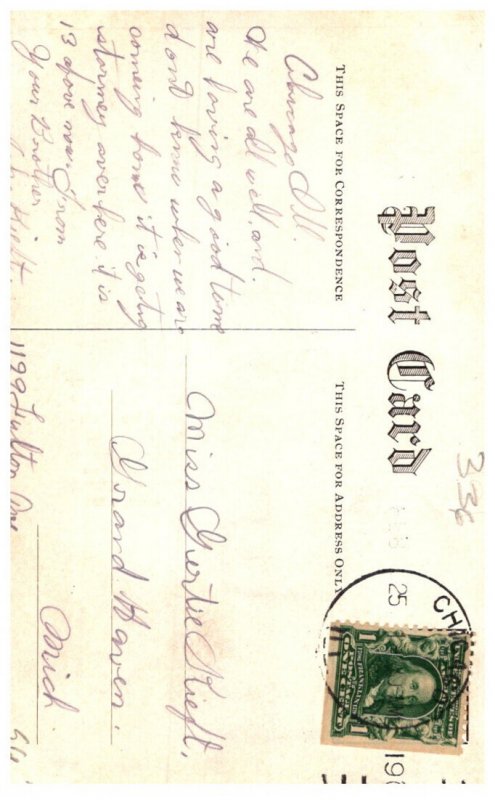 Post Card
THIS SPACE FOR CORRESPONDENCE
THIS SPACE FOR ADDRESS ONLY
Chicago Ill.
We are all well, and.
are having a good time
dont know when we are
comeing home it is getting
stormey over here. it is
13 above now. From
Your Brother
Kieft.
Miss Gertie Kieft,
Grand Haven.
Mich
1199 Fulton Ave
336
25
CH
190
1
1
ONE CENT